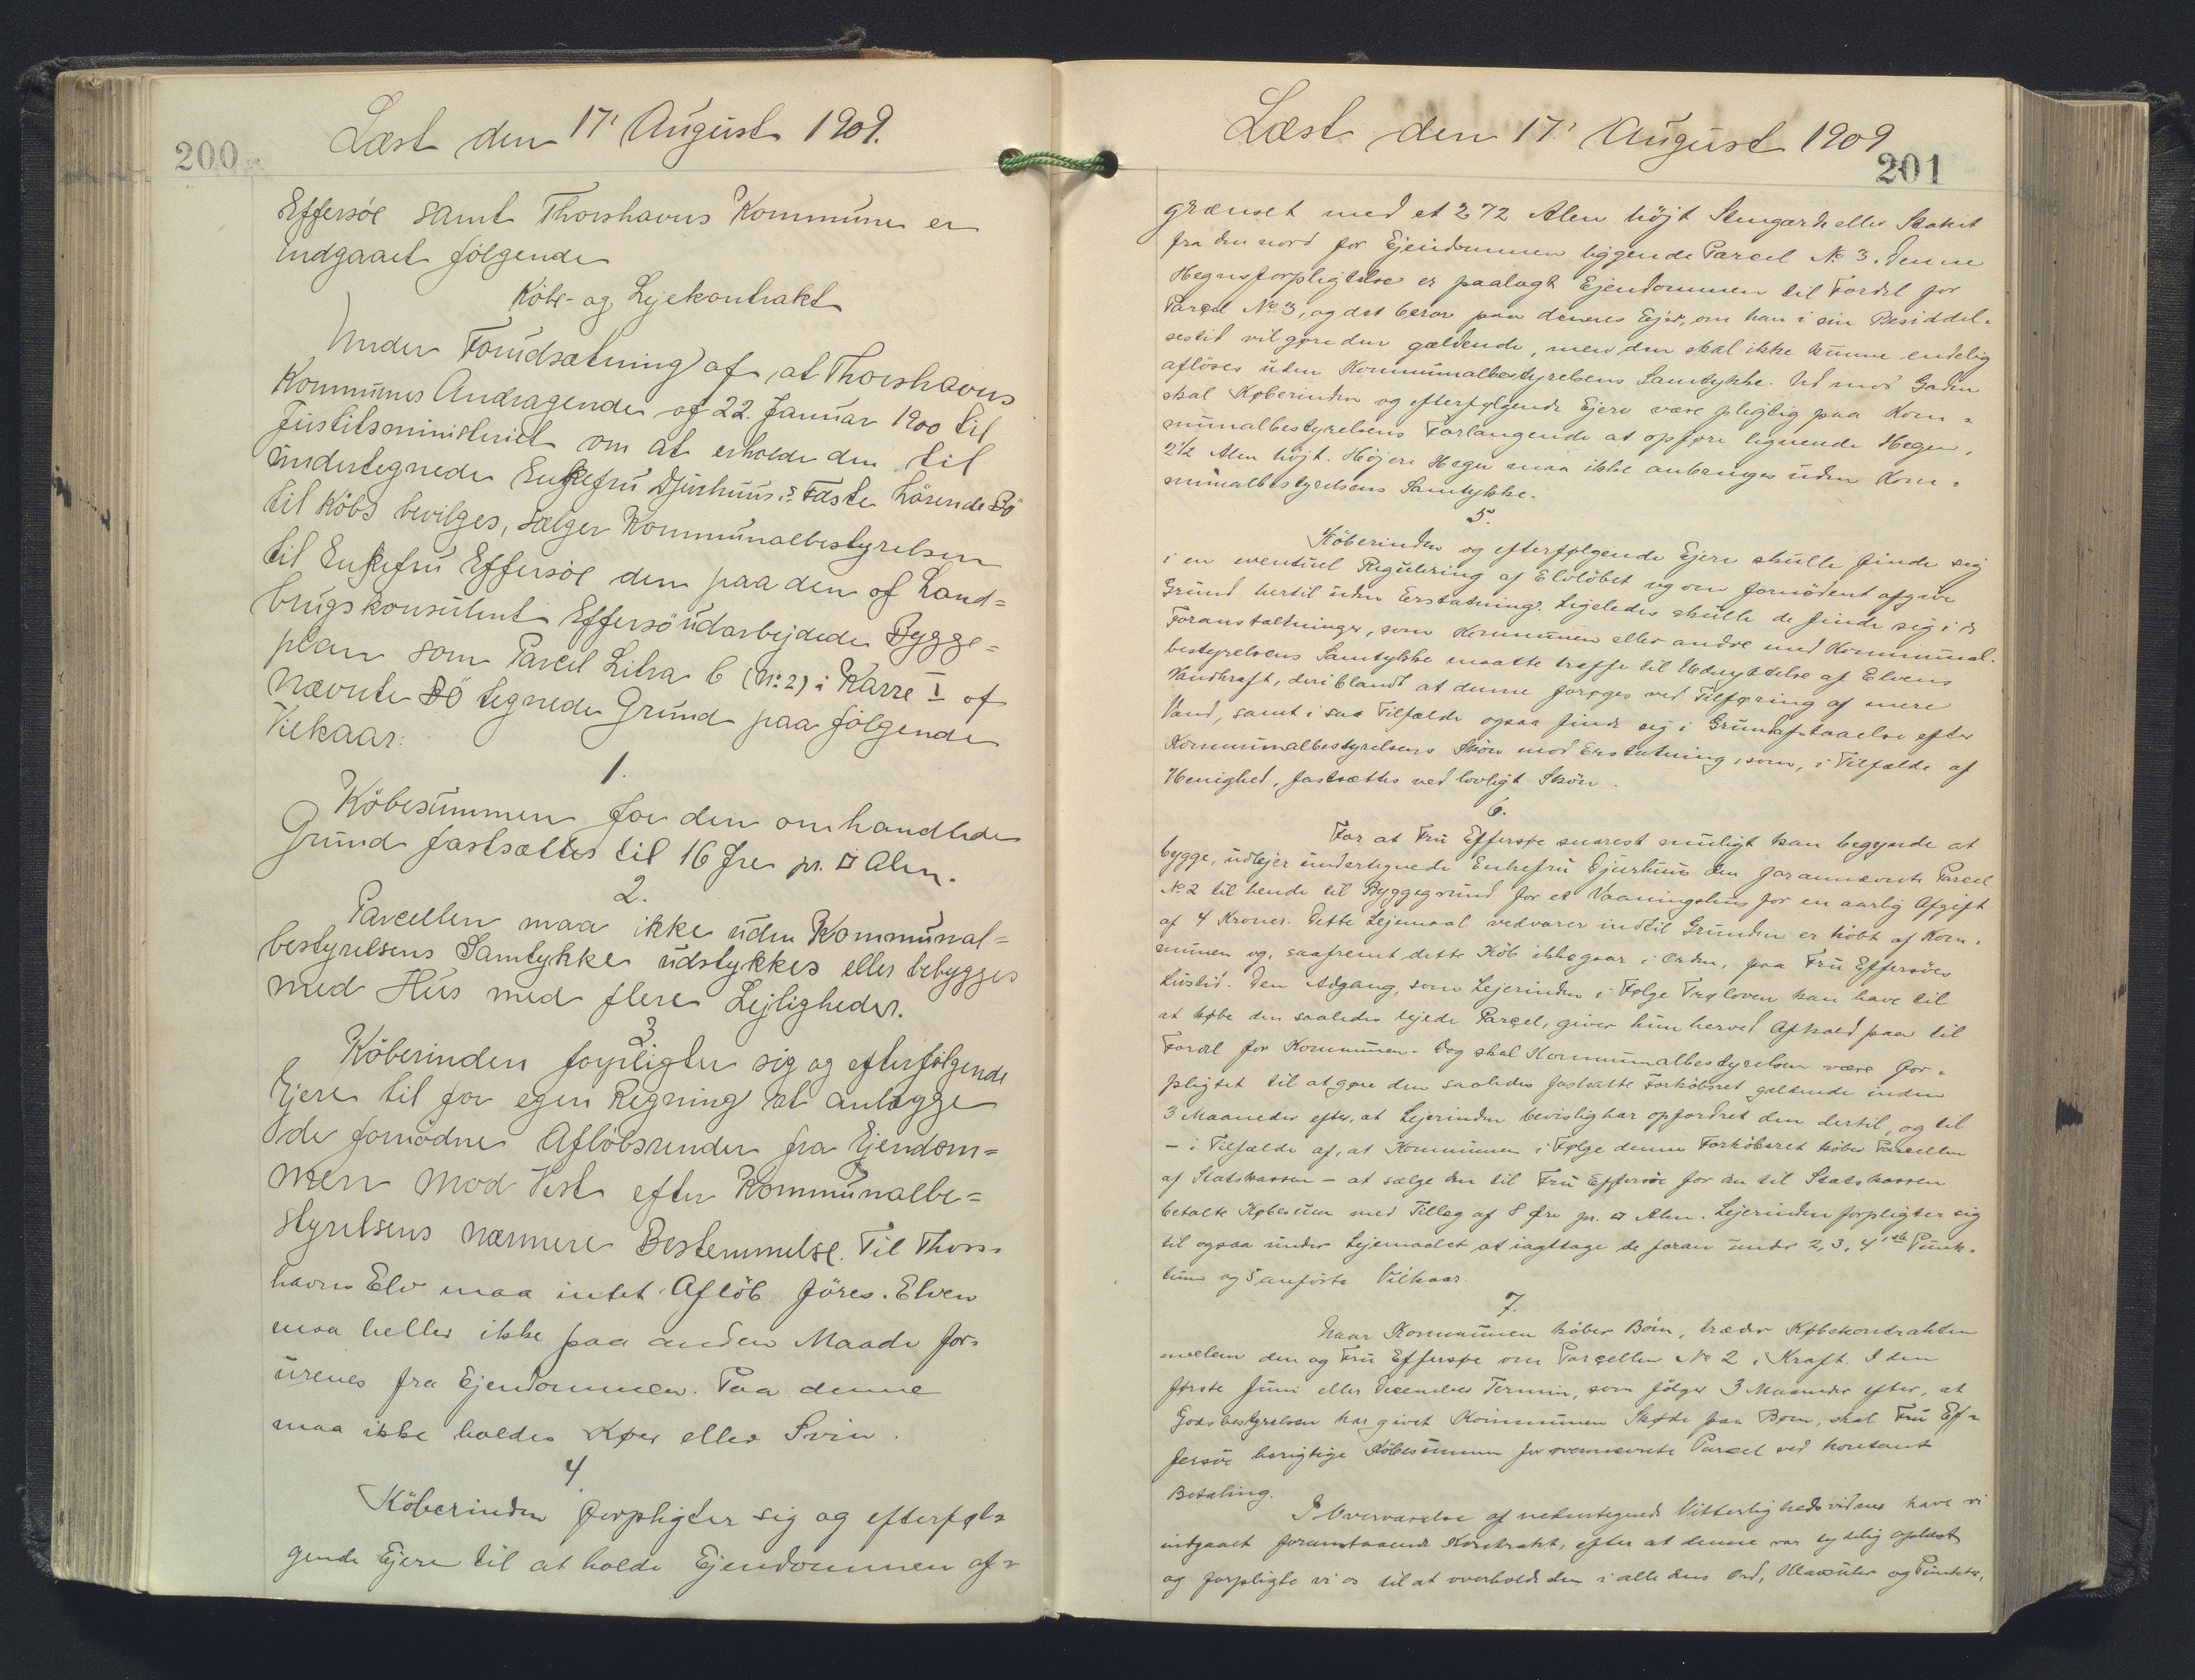 200
Læst den 17' August 1909.
Effersöe samt Thorshavns Kommune er
indgaaet følgende
Købe- og Lejekontrakt
Under Forudsætning af, at Thorshavns
Kommunes Andragende af 22. Januar 1900 til
Justitsministeriet om at erholde den til
undertegnede Enkefru Djurhuus's Fæste hörende Bö
til Købs bevilges, sælger Kommunalbestyrelsen
til Enkefru Effersöe den paa den af Land=
brugskonsulent Effersöe udarbejdede Bygge=
plan som Parcel Litra b (No. 2) i Karre I af
nævnte Bö tegnede Grund paa følgende
Vilkaar:
1.
Köbesummen for den omhandlede
Grund fastsættes til 16 Øre pr. □ Alen.
2.
Parcellen maa ikke uden Kommunal=
bestyrelsens Samtykke udstykkes eller bebygges
med Hus med flere Lejligheder.
3
Köberinden forpligter sig og efterfølgende
Ejere til for egen Regning at anlægge
de fornødne Aflöbsrender fra Ejendom=
men mod Vest efter Kommunalbe=
styrelsens nærmere Bestemmelse. Til Thors=
havns Elv maa intet Aflöb föres. Elven
maa heller ikke paa anden Maade for=
urenes fra Ejendommen. Paa denne
maa ikke holdes Køer eller Svin.
4
Köberinden forpligter sig og efterføl=
gende Ejere til at holde Ejendommen af=
Læst den 17' August 1909
201
grænset med et 2 72 Alen höjt Stengærde eller Stakit
fra den nord for Ejendommen liggende Parcel No 3. Denne
Hegnsforpligtelse er paalagt Ejendommen til Fordel for
Parcel No 3, og det beror paa dennes Ejer, om han i sin Besiddel=
sestid vil gøre den gældende, men den skal ikke kunne endelig
aflöses uden Kommunalbestyrelsens Samtykke. Ud mod Gaden
skal Køberinden og efterfølgende Ejere være pligtig paa Kom=
munalbestyrelsens Forlangende at opføre lignende Hegn,
2½ Alen højt. Højere Hegn maa ikke anbringes uden Kom=
munalbestyrelsens Samtykke.
5.
Köberinden og efterfølgende Ejere skulle finde sig
i en eventuel Regulering af Elvløbet og om fornødent afgive
Grund hertil uden Erstatning. Ligeledes skulle de finde sig i de
Foranstaltninger, som Kommunen eller andre med Kommunal=
bestyrelsens Samtykke maatte træffe til Udnyttelse af Elvens
Vandkraft, deriblandt at denne forøges ved Tilføring af mere
Vand, samt i saa Tilfælde ogsaa finde sig i Grundafstaaelse efter
Kommunalbestyrelsens Skön mod Erstatning, som, i Tilfælde af
Uenighed, fastsættes ved lovligt Skön.
6.
For at Fru Effersøe snarest muligt kan begynde at
bygge, udlejer undertegnede Enkefru Djurhuus den forannævnte Parcel
No 2 til hende til Byggegrund for et Vaaningshus for en aarlig Afgift
af 4 Kroner. Dette Lejemaal vedvarer indtil Grunden er købt af Kom=
munen og, saafremt dette Køb ikke gaar i Orden, paa Fru Effersöes
Livstid. Den Adgang, som Lejerinden i Følge loven kan have til
at købe den saaledes lejede Parcel, giver hun herved Afkald paa til
Fordel for Kommunen. Dog skal Kommunalbestyrelsen være for=
pligtet til at gøre den saaledes fastsatte Forkøbsret gældende inden
3 Maaneder efter, at Lejerinden bevislig har opfordret den dertil, og til
– i Tilfælde af, at Kommunen i Følge denne Forköbsret köber Parcellen
af Statskassen – at sælge den til Fru Effersöe for den til Statskassen
betalte Købesum med Tillæg af 8 Øre pr. □ Alen. Lejerinden forpligter sig
til ogsaa under Lejemaalet at iagttage de foran under 2, 3, 4 Punk=
tum og 5 anførte Vilkaar.
7.
Naar Kommunen køber Böen, træder Købekontrakten
mellem den og Fru Effersøe om Parcellen No 2 i Kraft. I den
første Juni eller December Termin, som følger 3 Maaneder efter, at
Godsbestyrelsen har givet Kommunen Skøde paa Böen, skal Fru Ef=
fersöe berigtige Købesummen for ovennævnte Parcel ved kontant
Betaling.
I Overværelse af nedentegnede Vitterlighedsvidner have vi
indgaaet foranstaaende Kontrakt, efter at denne var tydelig oplæst
og forpligte vi os til at overholde den i alle dens Ord, Klausuler og Punkter,